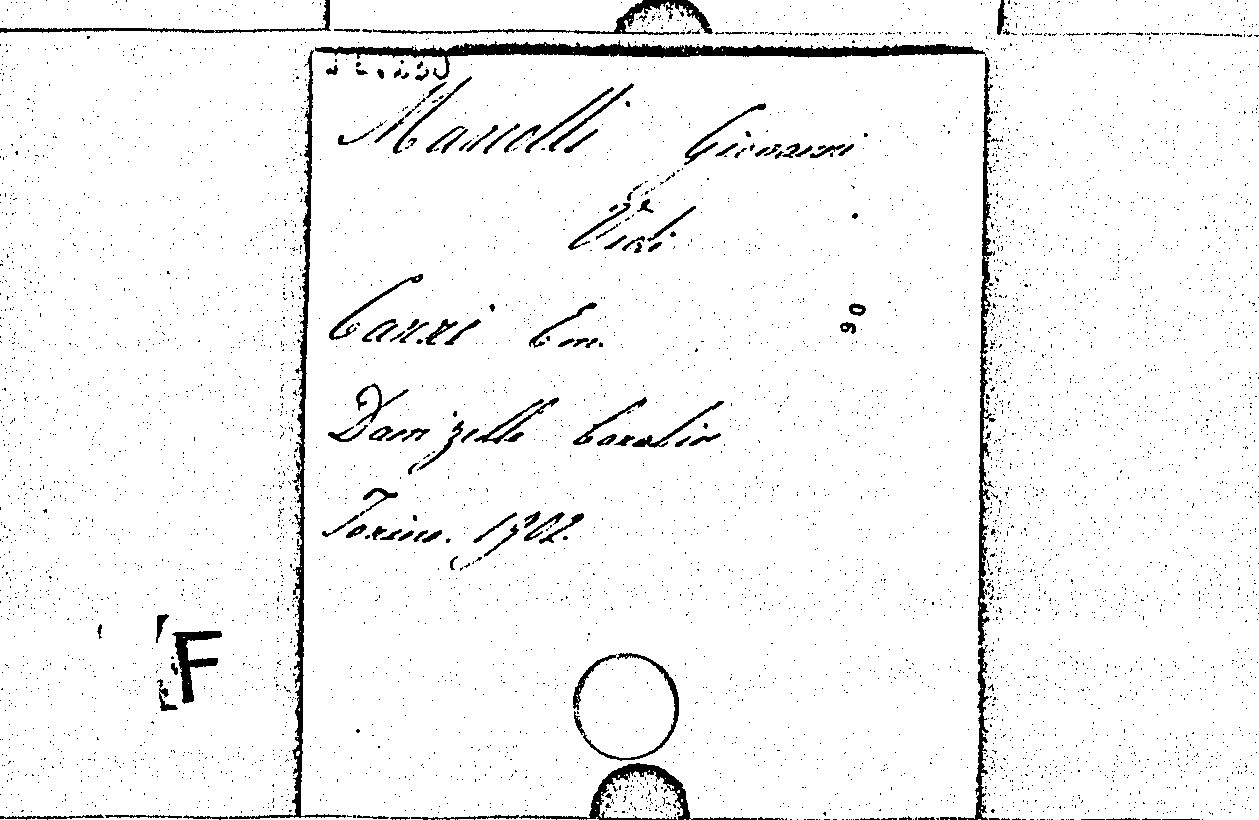 Marcolli Giovanni
Vedi
Canzi Em.
Damigelle Cavalier
Torino. 1902.
90
F